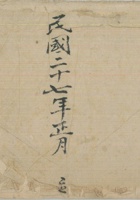 民國二十七年正月